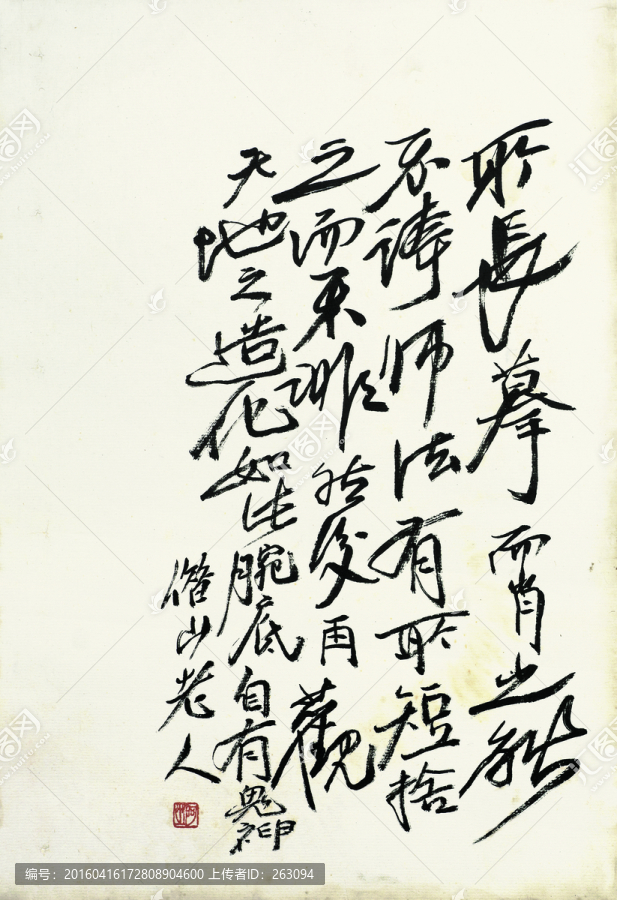 所長摹而肖之能
不誇師法有所短捨
之而不誹然後再觀
天地之造化如此腕底自有鬼神
借山老人
编号：20160416172808904600 上传者ID：263094